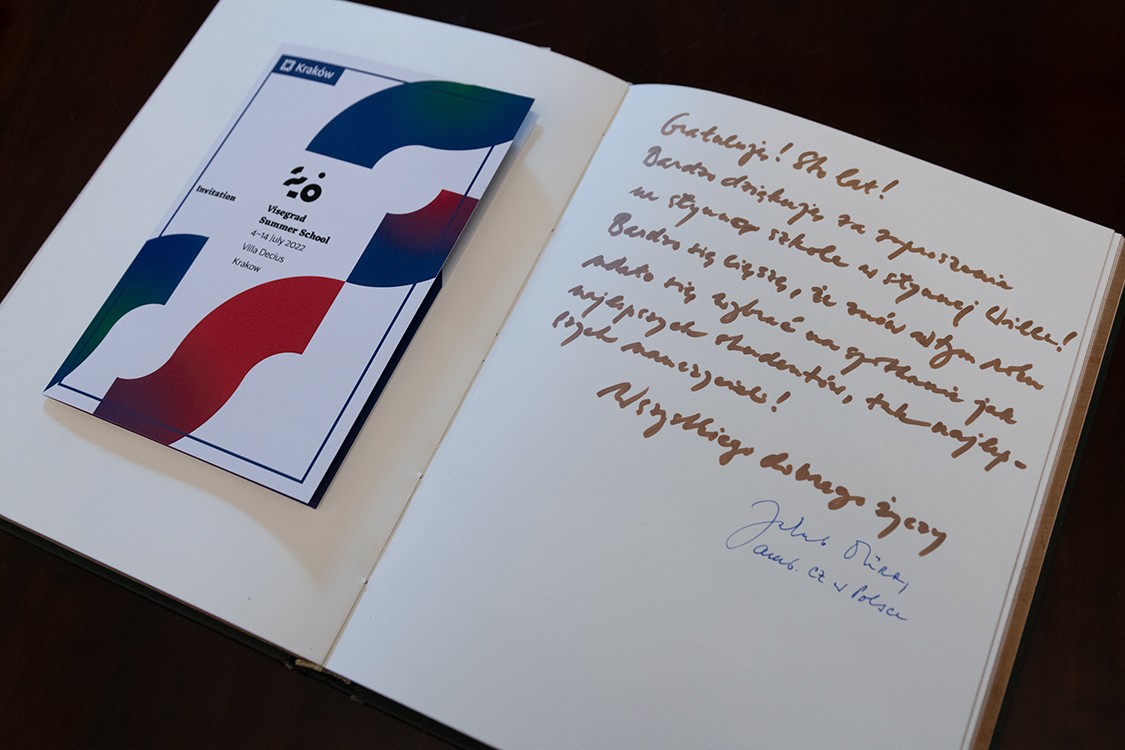 Kraków
Invitation
20
Visegrad
Summer School
4–14 July 2022
Villa Decius
Krakow
Gratuluję! Sto lat!
Bardzo dziękuję za zaproszenie
na słynnej szkole w słynnej Willi!
Bardzo się cieszę, że znów w tym roku
udało się wybrać na spotkanie jak
najlepszych studentów, tak najlep-
szych nauczycieli!
Wszystkiego dobrego życzy
Jakub Dürr,
amb. CZ w Polsce